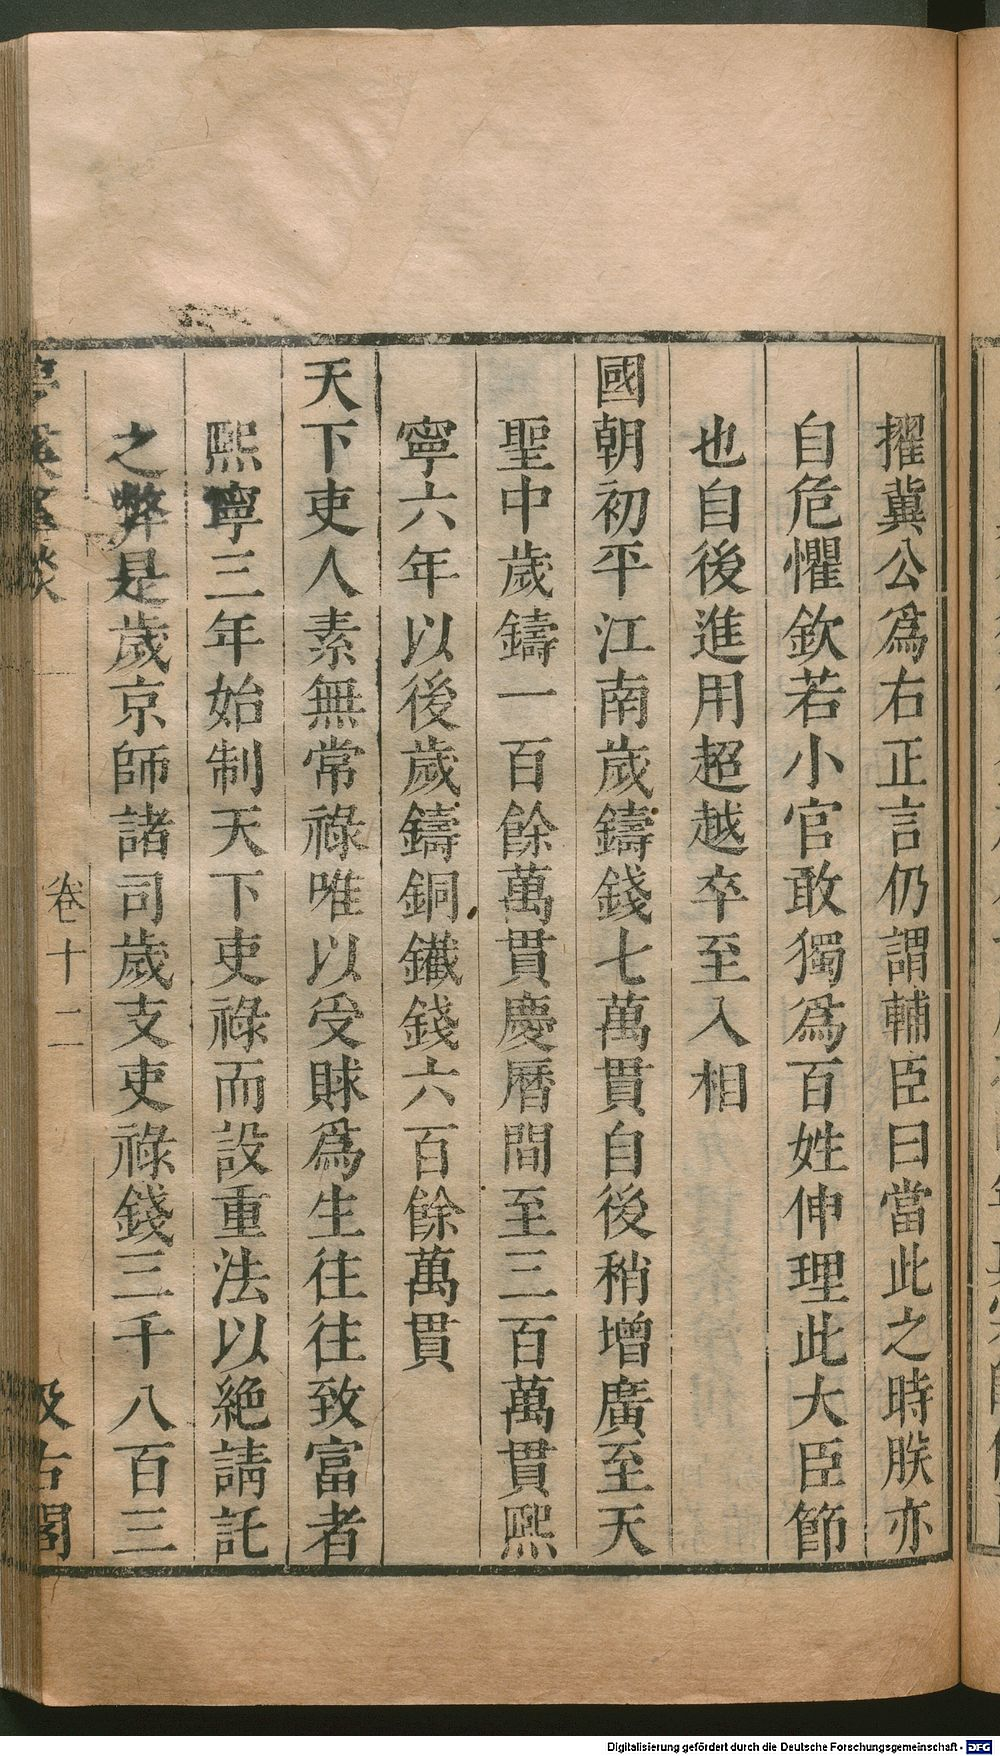 擢冀公爲右正言仍謂輔臣曰當此之時朕亦
自危懼欽若小官敢獨爲百姓伸理此大臣節
也自後進用超越卒至入相
國朝初平江南歲鑄錢七萬貫自後稍增廣至天
聖中歲鑄一百餘萬貫慶曆間至三百萬貫熙
寧六年以後歲鑄銅鐵錢六百餘萬貫
天下吏人素無常祿唯以受賕爲生往往致富者
熙寧三年始制天下吏祿而設重法以絕請託
之弊是歲京師諸司歲支吏祿錢三千八百三
夢溪筆談
卷十二
汲古閣
Digitalisierung gefördert durch die Deutsche Forschungsgemeinschaft - DFG